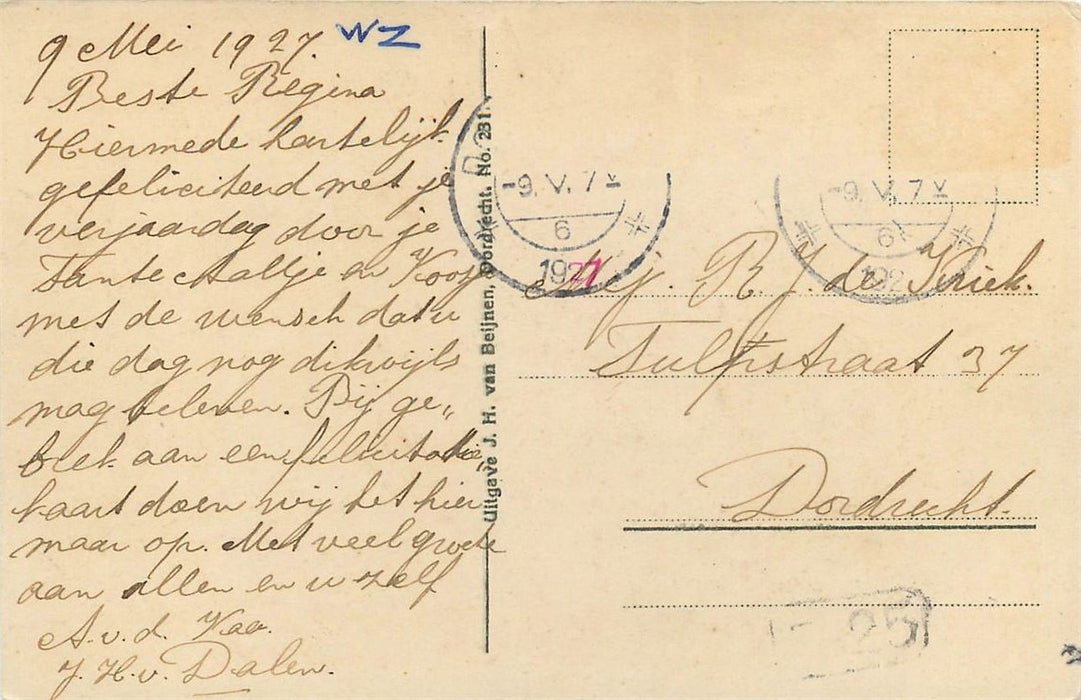 9 Mei 1927 WZ
Beste Regina
Hiermede hartelijk
gefeliciteerd met je
verjaardag door je
Tante Aaltje en Koos
met de wensch dat u
die dag nog dikwijls
mag beleven. Bij ge„
brek aan een felicitatie
kaart doen wij het hier
maar op. Met veel groete
aan allen en u zelf
A. v. d. Kaa.
J. H. v. Dalen.
Uitgave J. H. van Beijnen, Dordrecht. No. 231.
-9.V.7V
6
1927
-9.V.7V
6
192
Mej. R. J. de Kriek.
Tulpstraat 37
Dordrecht.
25